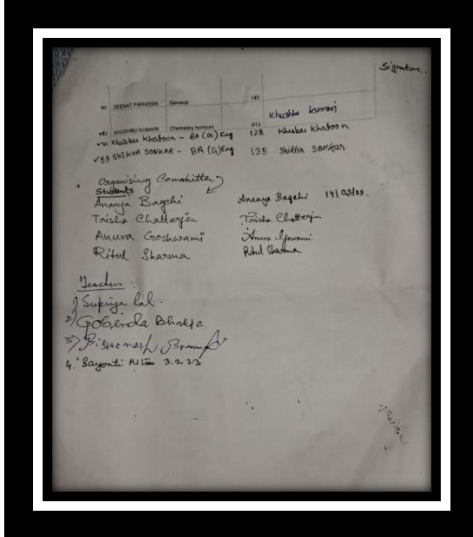 Signature.
60 ZEENAT PARVEEN General 145
61 KHUSHBU KUMARI Chemistry honours 613 Khushbu kumari
Khusbu Khatoon - BA (G) Eng 128 Khusbu Khatoon
SHIKHA SONKAR - BA (G) Eng 135 Shikha Sonkar
Organising Committee
Students
Ananya Bagchi Ananya Bagchi
Trisha Chatterjee Trisha Chatterjee
Anuva Goshwami Anuva Goswami
Ritul Sharma Ritul Sharma
Teachers :
1) Supriya Lal.
2) Gobinda Bhakta.
3)
4. Sayonti 3.2.23